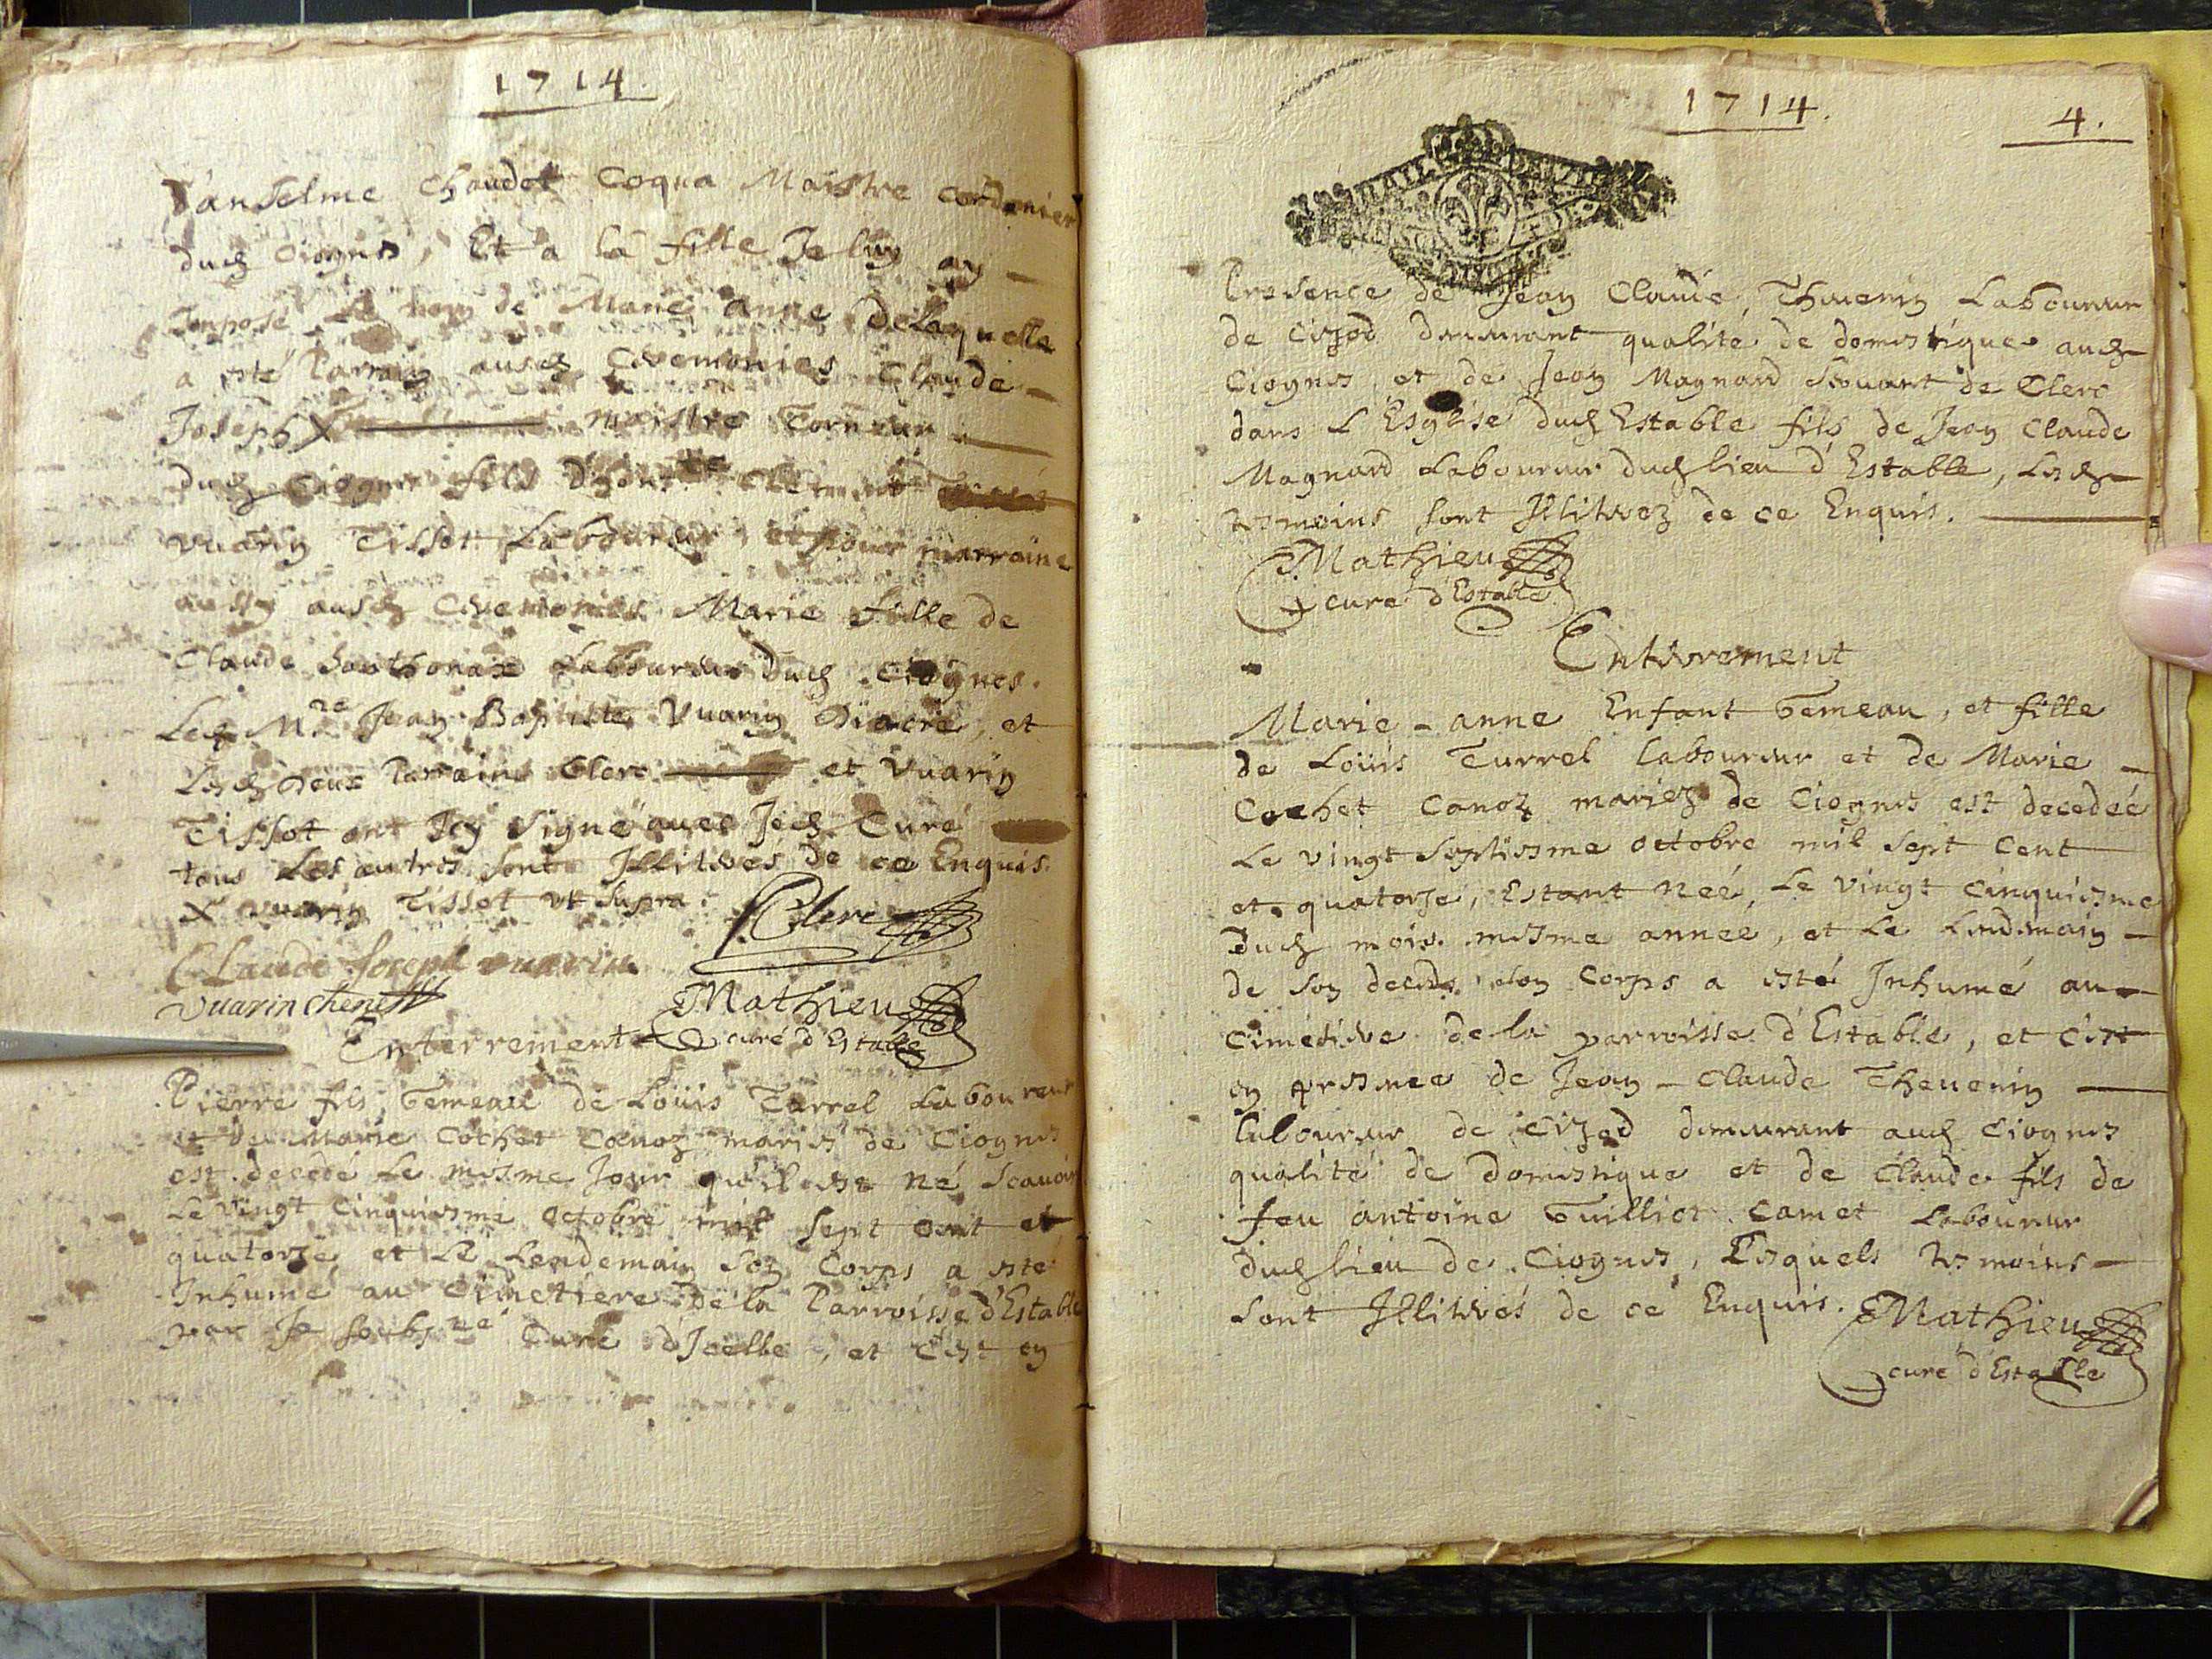 1714.
D'anselme Chaudet Coqua Maistre Cordonier
dud Ciognes, Et a la fille Je luy ay
Imposé Le nom de Marie anne delaquelle
a esté Parrain ausd Ceremonies Claude
Joseph X maistre Torneur
dud Ciognes fils d'hon^te Clement
Vuarin Tissot Laboureur, et pour marraine
aussy ausd Ceremonies Marie fille de
Claude Sonthonax Laboureur dud Ciognes.
Led M^re Jean Baptiste Vuarin Diacre, et
Lesd Deux Parrains Clerc et Vuarin
Tissot ont Icy signé avec Jed Curé
tous Les autres sont Illiterés de ce Enquis.
X vuarin Tissot vt supra.
Clerc
Claude Joseph vuarin
Vuarin chene
Mathieu
curé d'Estable
Enterrement
Pierre fils Gemeau de Loüis Turrel Laboureur
et de Marie Cochet Canoz mariés de Ciognes
est decedé Le mesme Jour qu'il est né Scavoir
Le vingt cinquiesme octobre mil sept cent et
quatorze, et Le Lendemain son Corps a esté
Inhumé au Cimetiere de la Parroisse d'Estable
par Je soubs^né Curé d'Icelle, et c'est en
1714.
4.
Presence de Jean Claude Thevenin Laboureur
de Cizod demeurant qualité de domestique aud
Ciognes, et de Jean Magnard Servant de Clerc
dans L'Esglise dud Estable fils de Jean Claude
Magnard Laboureur dud lieu d'Estable, Lesd
tesmoins sont Illiterez de ce Enquis.
Mathieu
curé d'Estable
Enterrement
Marie-anne Enfant Gemeau, et fille
de Loüis Turrel laboureur et de Marie
Cochet Canoz mariez de Ciognes est decedeé
Le vingt septiesme octobre mil sept Cent
et quatorze, Estant Neé, Le vingt Cinquiesme
Dud mois mesme anneé, et Le Lendemain
de son deceds son Corps a esté Inhumé au
Cimetiere de la parroisse d'Estable, et c'est
en presence de Jean-Claude Thevenin
laboureur de Cizod demeurant aud Ciognes
qualité de Domestique et de Claude fils de
feu antoine Guilliot Camet Laboureur
Dud lieu de Ciognes, Lesquels tesmoins
sont Illiterés de ce Enquis.
Mathieu
curé d'Estable